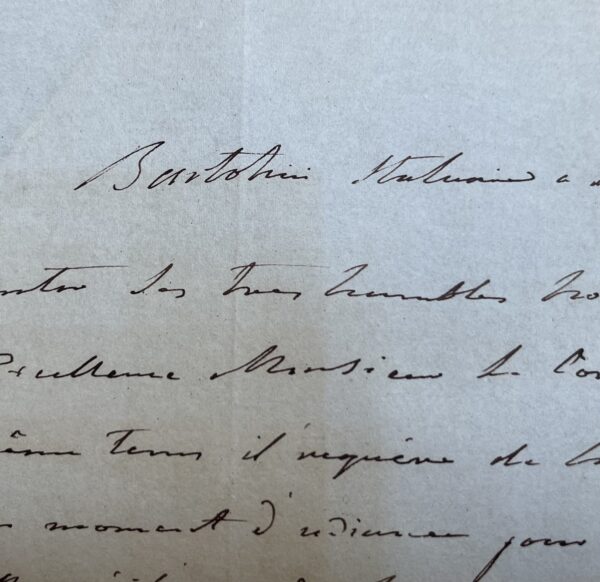 Bartolini Statuaire a
ses tres humbles ho
Excellence Monsieur le Con
même tems il requiére de
moment d'udiance pour